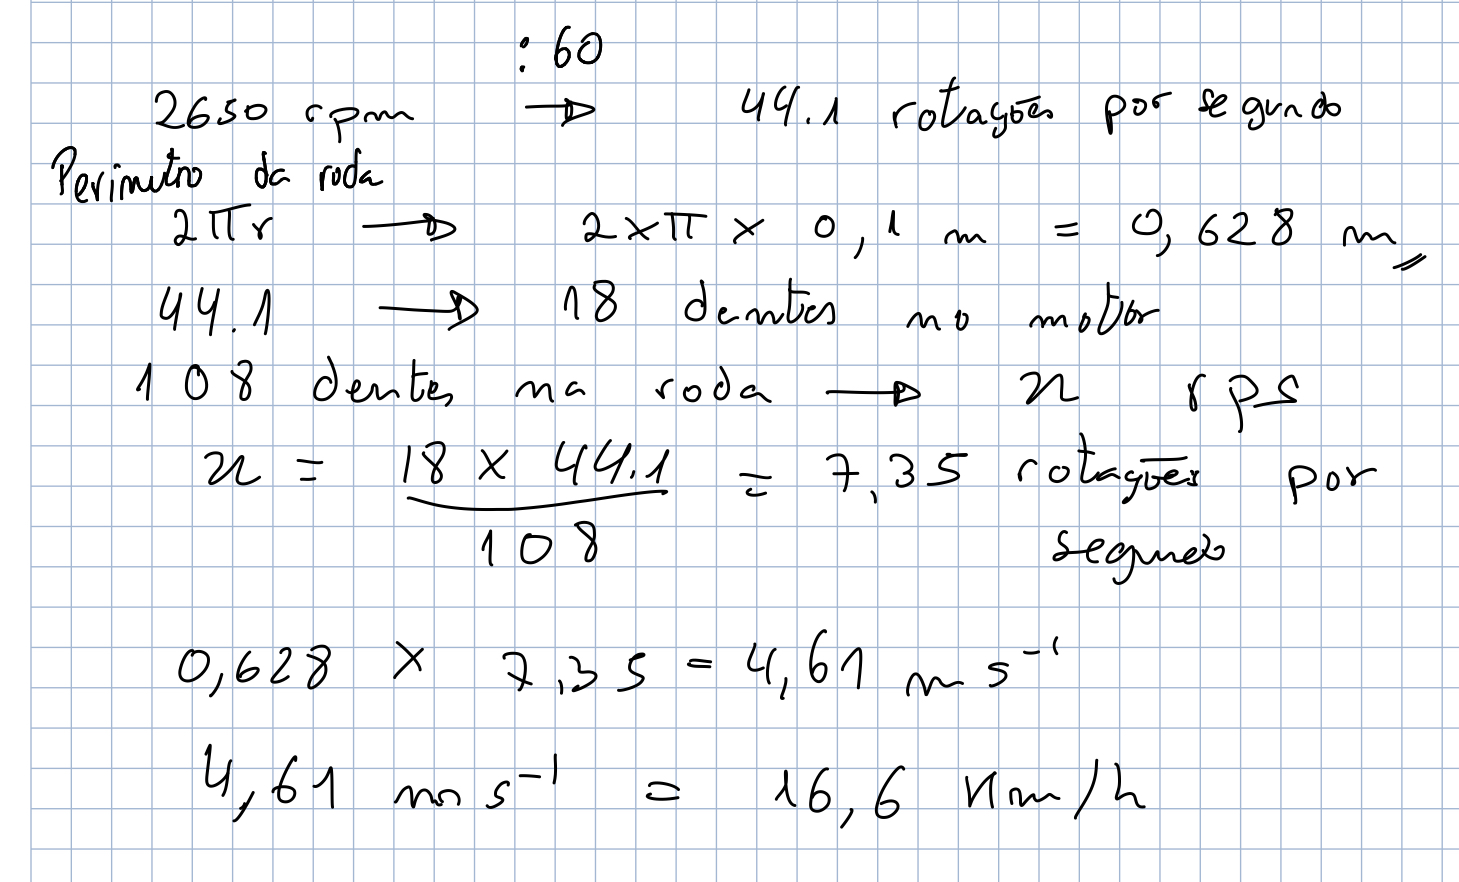 : 60
2650 rpm → 44.1 rotações por segundo
Perimetro da roda
2πr → 2×π × 0,1 m = 0,628 m
44.1 → 18 dentes no motor
108 dentes na roda → x rps
x = 18 × 44.1 = 7,35 rotações por
108 segundo
0,628 × 7,35 = 4,61 m s⁻¹
4,61 m s⁻¹ = 16,6 Km/h